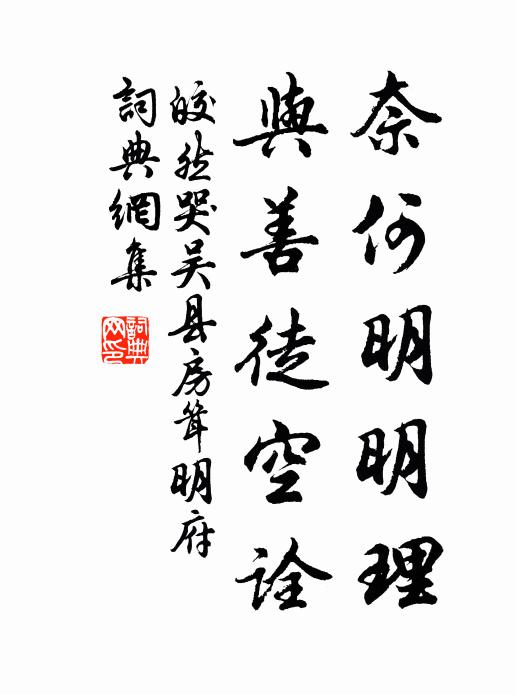 奈何明明理
與善徒空詮
皎然哭吴县房耸明府
詞典網集
詞典网印